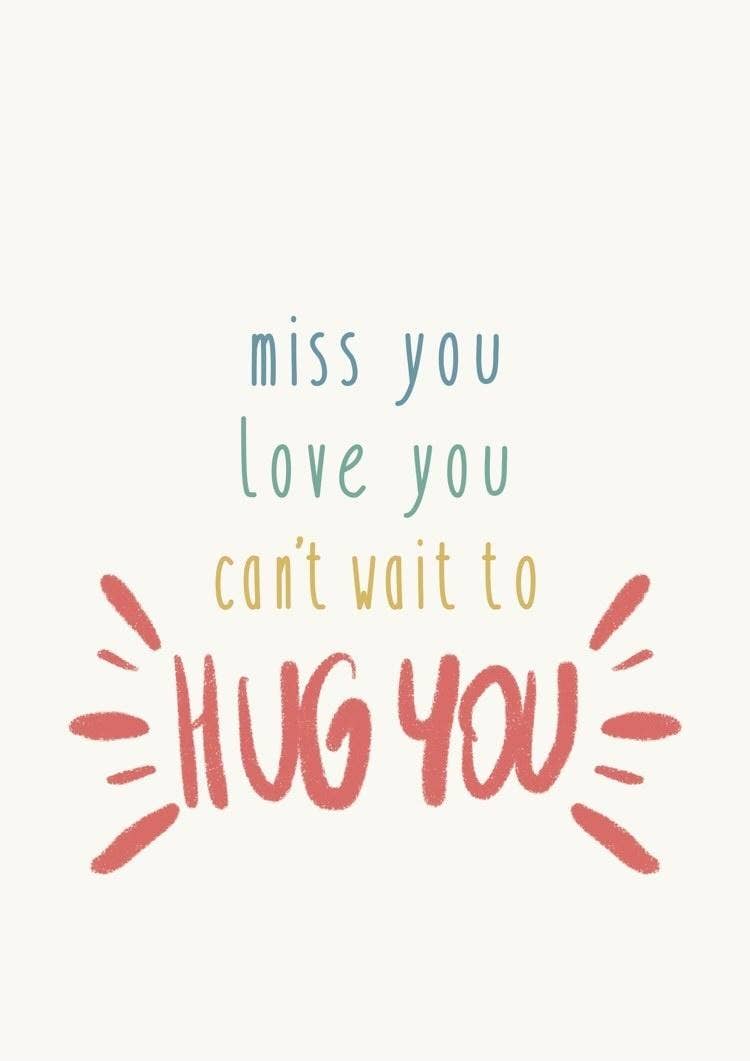 miss you
love you
can't wait to
HUG YOU